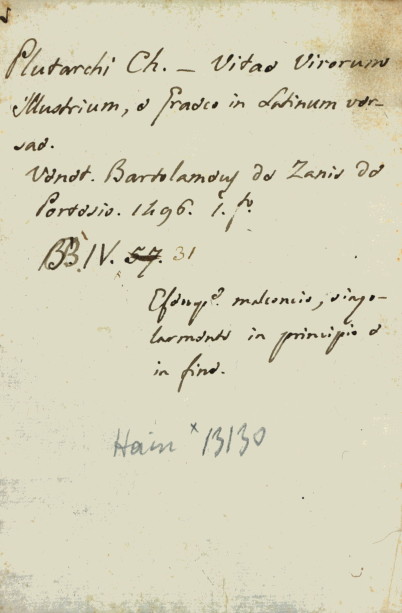 Plutarchi Ch. — Vitae Virorum
illustrium, e Graeco in Latinum ver-
sae.
Venet. Bartolameus de Zanis de
Portesio. 1496. 1. fo.
BB. IV. 57. 31
Esempe. malconcio, singo-
larmente in principio e
in fine.
Hain x 13130